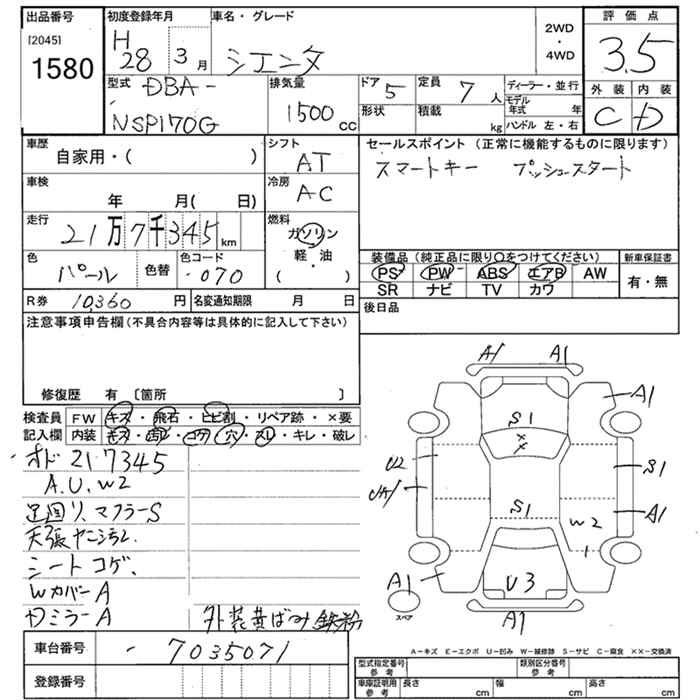 出品番号 初度登録年月 車名・グレード 2WD・4WD 評価点
[2045] 1580 H28 3月 シエンタ 3.5
外装 内装
C D
型式 DBA- 排気量 ドア 5 定員 7人 ディーラー・並行
NSP170G 1500cc 形状 積載 kg モデル年式 年
ハンドル 左・右
車歴 シフト セールスポイント (正常に機能するものに限ります)
自家用・( ) AT スマートキー プッシュスタート
車検 冷房
年 月( 日) AC
走行 燃料
21万7千345km ガソリン
軽・油
( )
色 色コード 装備品(純正品に限り○をつけてください) 新車保証書
パール 色替 070 PS PW ABS エアB AW 有・無
SR ナビ TV カワ
R券 10,360円 名変通知期限 月 日 後日品
注意事項申告欄(不具合内容等は具体的に記入して下さい)
修復歴 有 〔箇所 〕
検査員 FW キズ・飛石・ヒビ割・リペア跡・×要
記入欄 内装 キズ・汚レ・コゲ・穴・スレ・キレ・破レ
オド 217345
A.U.W2
足回り、マフラーS
天張ヤニ汚レ
シートコゲ.
WカバーA
ドミラーA 外装黄ばみ 鉄粉
A1 A1
A1
S1
××
U2 S1
UA1
S1 A1
W2
1
A1 U3
スペア A1
A-キズ E-エクボ U-凹み W-補修跡 S-サビ C-腐食 ××-交換済
車台番号 -7035071
登録番号
型式指定番号 参考 類別区分番号 参考
車庫証明用 参考 長さ cm 幅 cm 高さ cm